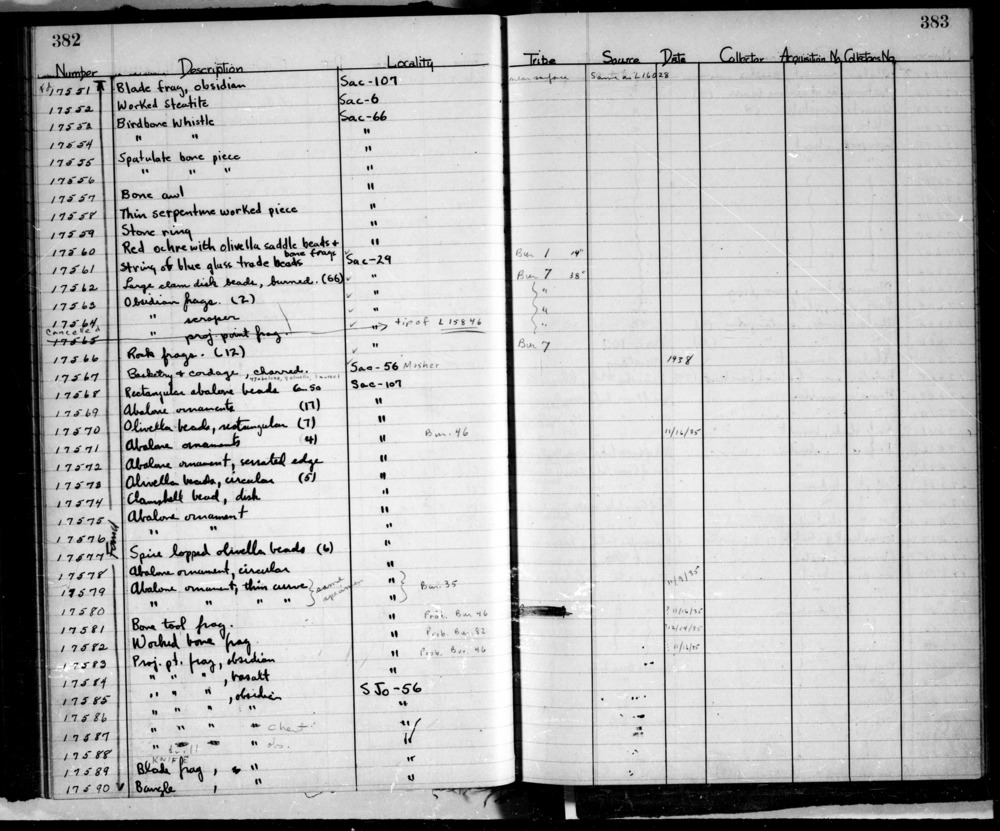 382
383
Number Description Locality Tribe Source Date Collector Acquisition No Collectors No.
17551 Blade frag, obsidian Sac-107 near surface Same as L16028
17552 Worked Steatite Sac-6
17553 Birdbone Whistle Sac-66
17554 " " "
17555 Spatulate bone piece "
17556 " " " "
17557 Bone awl "
17558 Thin serpentine worked piece "
17559 Stone ring "
17560 Red ochre with olivella saddle beads + bone frags " Bur 1 14"
17561 String of blue glass trade beads Sac-29 Bur 7 38"
17562 Large clam disk beads, burned. (66) " "
17563 Obsidian frags. (2) " "
17564 " scraper " "
Cancelled 17565 " proj point frag. " tip of L15846
17566 Rock frags. (12) " Bur 7
17567 Basketry + cordage, charred. Sac-56 Mosher 1938
17568 Rectangular abalone beads 50 Sac-107
17569 Abalone ornaments (17) "
17570 Olivella beads, rectangular (7) "
17571 Abalone ornaments 4) " Bur. 46 11/16/35
17572 Abalone ornament, serrated edge "
17573 Olivella beads, circular (5) "
17574 Clamshell bead, disk "
17575 Abalone ornament "
17576 " " "
17577 Spire lopped olivella beads (6) "
17578 Abalone ornament, circular " 11/9/35
17579 Abalone ornament, thin curve } same specimen " } Bur. 35
17580 " " " " "
17581 Bone tool frag. " Prob. Bur 46 11/16/35
17582 Worked bone frag " Prob. Bur. 82 12/14/35
17583 Proj. pt. frag, obsidian " Prob. Bur. 46 11/16/35
17584 " " " , basalt "
17585 " " " , obsidian SJo-56
17586 " " " " "
17587 " " " " chert "
17588 " " " obs. "
KNIFE
17589 Blade frag, " "
17590 Bangle , " "